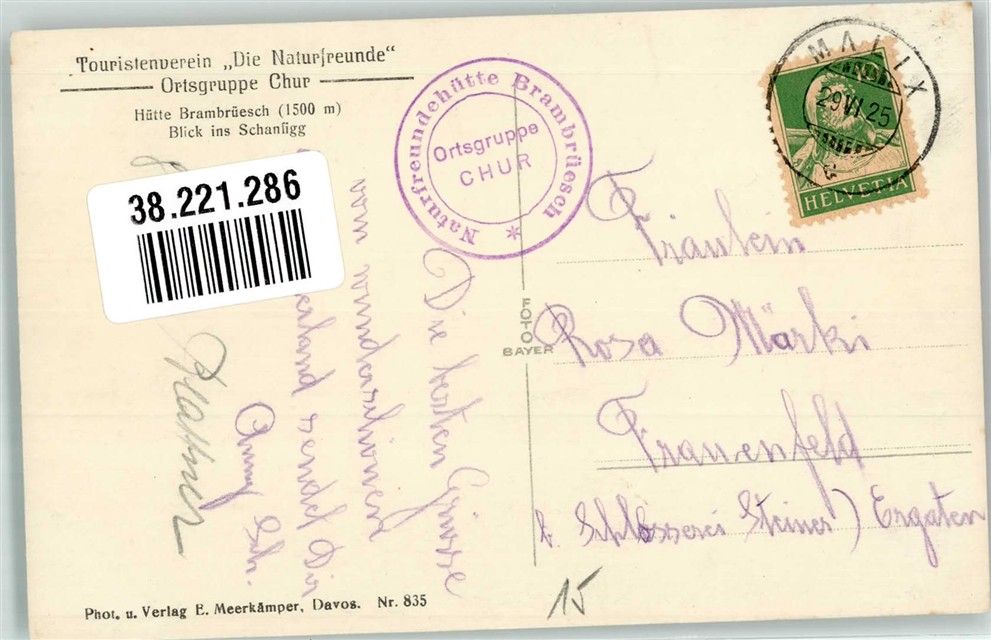 Touristenverein „Die Naturfreunde“
Ortsgruppe Chur
Hütte Brambrüesch (1500 m)
Blick ins Schanfigg
38.221.286
Naturfreundehütte Brambrüesch *
Ortsgruppe
CHUR
MALIX
29 VI 25
HELVETIA
Die besten Grüsse
vom wunderschönen
sendet Dir
Anny Sch.
Plattner
FOTO
BAYER
Fräulein
Rosa Märki
Frauenfeld
z. Schlosserei Steiner) Ergaten
15
Phot. u. Verlag E. Meerkämper, Davos. Nr. 835